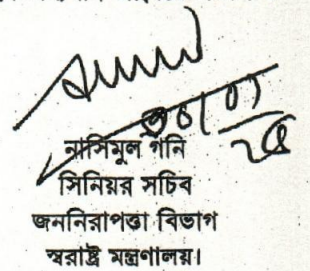 ৩০/০১/২৫
নাসিমুল গনি
সিনিয়র সচিব
জননিরাপত্তা বিভাগ
স্বরাষ্ট্র মন্ত্রণালয়।